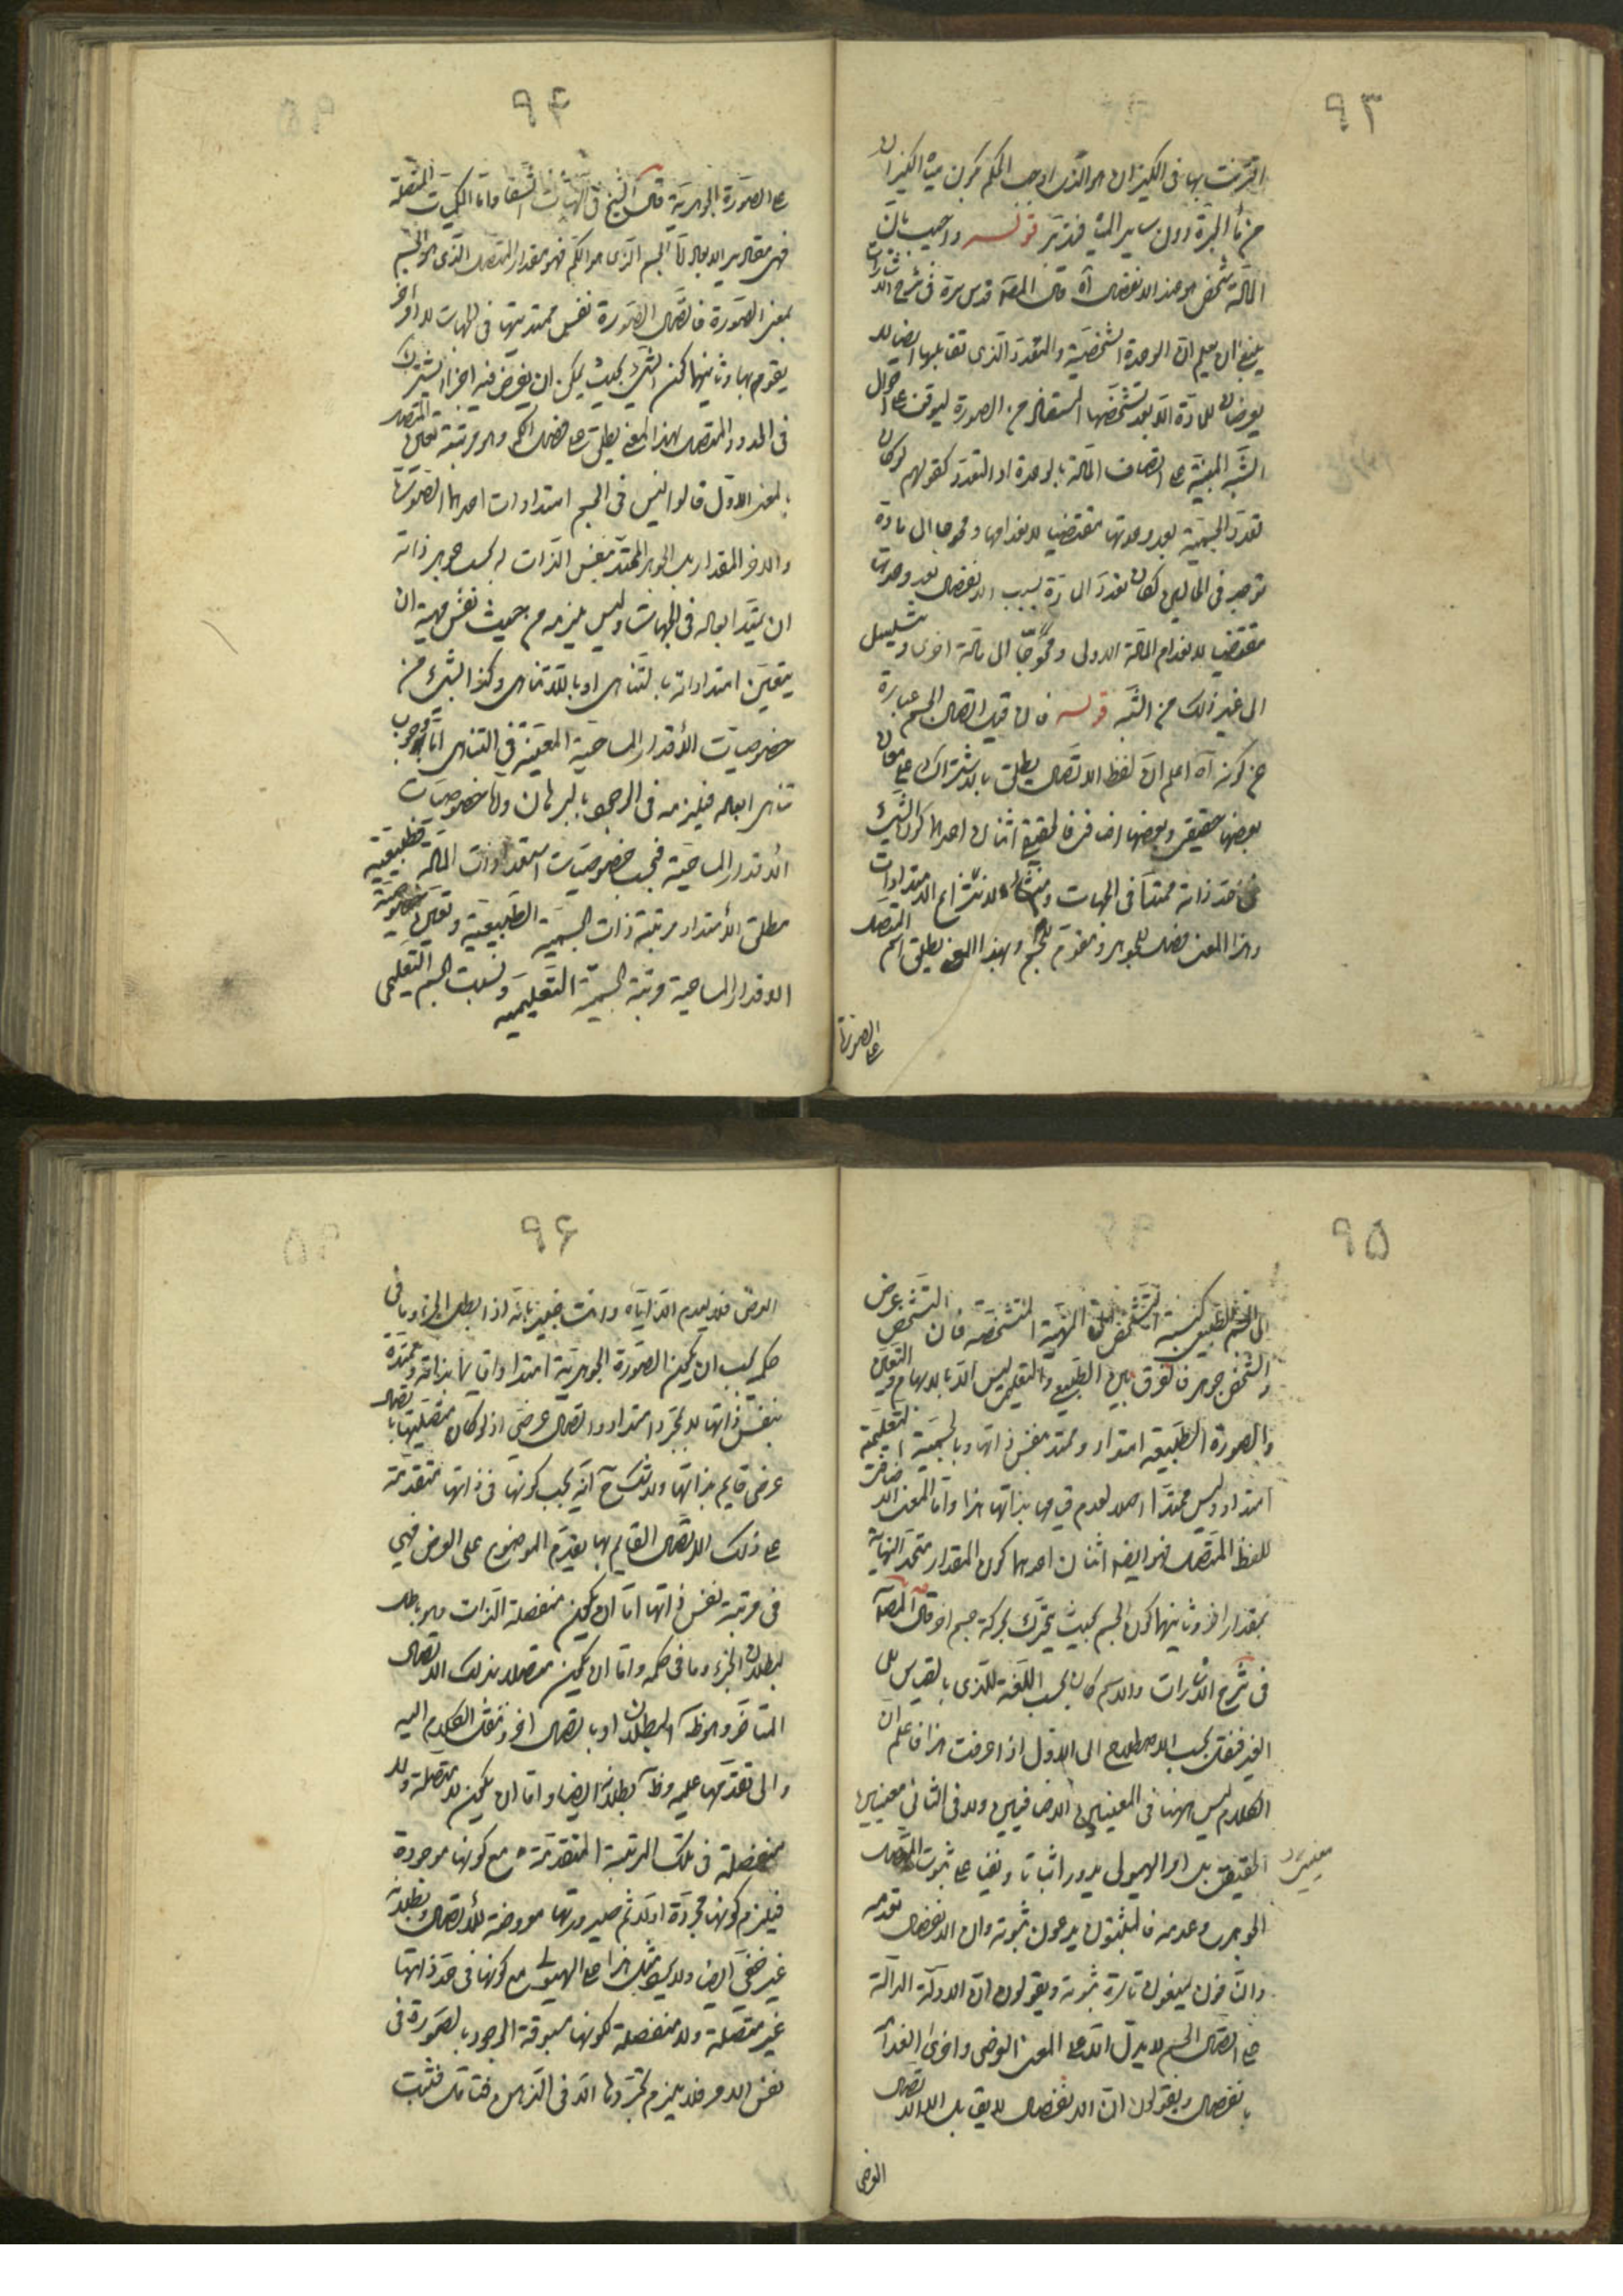 ٩٣
اقترنت بها فى الكيزان هو الذى اوجب الحكم بكون مياه الكيزان
من ماء الجرة دون ساير المياه فتدبر قوله واجيب بان
المادة شخص هو عند الانفصال آه قال المصـ قدس سره فى شرح الاشارات
ينبغى ان يعلم ان الوحدة الشخصية والتعدد الذى تقابلها ايضا لا
يعرضان للمادة الا بعد تشخصها المستفاد من الصورة ليوقف على احوال
الشبه المبنية على اتصاف المادة بالوحدة او التعدد كقولهم لو كان
تعدد الجسمية بعد وحدتها مقتضيا لانعدامها ومحوجا الى مادة
توجد فى الحالين لكان تعدد المادة بسبب الانفصال بعد وحدتها
مقتضيا لانعدام المادة الاولى ومحوجا الى مادة اخرى ويتسلسل
الى غير ذلك من الشبه قوله فان قيل اتصال الجسم عبارة
عن كونه آه اعلم ان لفظ الاتصال يطلق بالاشتراك على معان
بعضها حقيقى وبعضها اضافى فالحقيقى اثنان احدهما كون الشئ
فى حد ذاته ممتدا فى الجهات ومنشاء لانتزاع الامتدادات
وهذا المعنى فصل للجوهر ومقوم للجسم وبهذا المعنى يطلق اسم المتصل
على الصورة
٩٤
على الصورة الجوهرية قال الشيخ فى الهيات الشفا واما الكميات المتصلة
فهى مقادير الابعاد اما الجسم الذى هو الكم فهو مقدار المتصل الذى هو الجسم
بمعنى الصورة فاتصال الصورة نفس ممتديتها فى الجهات لا امر اخر
يقوم بها وثانيهما كون الشئ بحيث يمكن ان يفرض فيه اجزاء تشترك
فى الحدود والمتصل بهذا المعنى يطلق على فصل الكم وهو مرتبة تعين المتصل
بالمعنى الاول قالوا ليس فى الجسم امتدادات احدها الصورة
والاخر المقدار بل الجوهر الممتد بنفس الذات له بحسب جوهر ذاته
ان يمتد ابعاده فى الجهات وليس يلزمه من حيث نفس مهيته ان
يتعين امتداداته بالتناهى او باللاتناهى وكذا الشئ من
خصوصيات الاقدار المساحية المعينة فى التناهى اما وجوب
تناهى ابعاده فيلزمه فى الوجود بالبرهان واما خصوصيات
الاقدار المساحية فبحسب خصوصيات استعدادات المادة فطبيعية
مطلق الامتداد مرتبة ذات الجسمية الطبيعية وتعين خصوصية
الاقدار المساحية مرتبة الجسمية التعليمية ونسبت الجسم التعليمى
٩٥
الى الجسم الطبيعى كنسبة التشخص الى المهية المتشخصة فان التشخص عرض
والشخص جوهر فالفرق بين الطبيعى والتعليمى ليس الا بالابهام والتعين
والصورة الطبيعية امتداد وممتد بنفس ذاتها وبالجسمية التعليمية
امتداد وليس ممتدا اصلا لعدم قيامها بذاتها هذا واما المعنى الاضافى
للفظ المتصل فهو ايضا اثنان احدهما كون المقدار متحد النهاية
بمقدار اخر وثانيهما كون الجسم بحيث يتحرك بحركة جسم اخر قال المصـ
فى شرح الاشارات والاسم كان بحسب اللغة للذى بالقياس الى
الغير فنقل بحسب الاصطلاح الى الاول اذا عرفت هذا فاعلم ان
الكلام ليس ههنا فى المعنيين الاضافيين ولا فى الثانى معنيين
معنيى
الحقيقى بل امر الهيولى يدور اثباتا ونفيا على ثبوت المتصل
الجوهرى وعدمه فالمثبتون يدعون ثبوته وان الانفصال يعدمه
والنافون ينفون تارة ثبوته ويقولون ان الادلة الدالة
على اتصال الجسم لا يدل الا على المعنى العرضى واخرى انعدامه
بانفصال ويقولون ان الانفصال لا يقابل الا الاتصال
العرضى
٩٦
العرضى فلا يعدم الا اياه وانت خبير بانه اذا بطل الجزء وما فى
حكمه يجب ان يكون الصورة الجوهرية امتدادا قايما بذاته وممتدة
بنفس ذاتها لا بمجرد امتداد واتصال عرضى اذ لو كان متصليتها باتصال
عرضى قايم بذاتها ولا شك ح انه يجب كونها فى ذاتها متقدمة
على ذلك الاتصال القايم بها بقدم الموضوع على العرض فهى
فى مرتبة نفس ذاتها اما ان يكون منفصلة الذات وهو باطل
لبطلان الجزء وما فى حكمه واما ان يكون متصلا بذلك الاتصال
المتاخر وهو ظه البطلان او باتصال اخر وننقل الكلام اليه
والى تقدمها عليه وظه بطلانه ايضا واما ان يكون لا متصلة ولا
منفصلة فى تلك المرتبة المتقدمة مع كونها موجودة
فيلزم كونها مجردة اولا ثم صيرورتها معروضة للاتصال وبطلانه
غير خفى ايضا ولا يشكل هذا على الهيولى مع كونها فى حد ذاتها
غير متصلة ولا منفصلة لكونها مسبوقة الوجود بالصورة فى
نفس الامر فلا يلزم تجردها الا فى الذهن فتامل فثبت